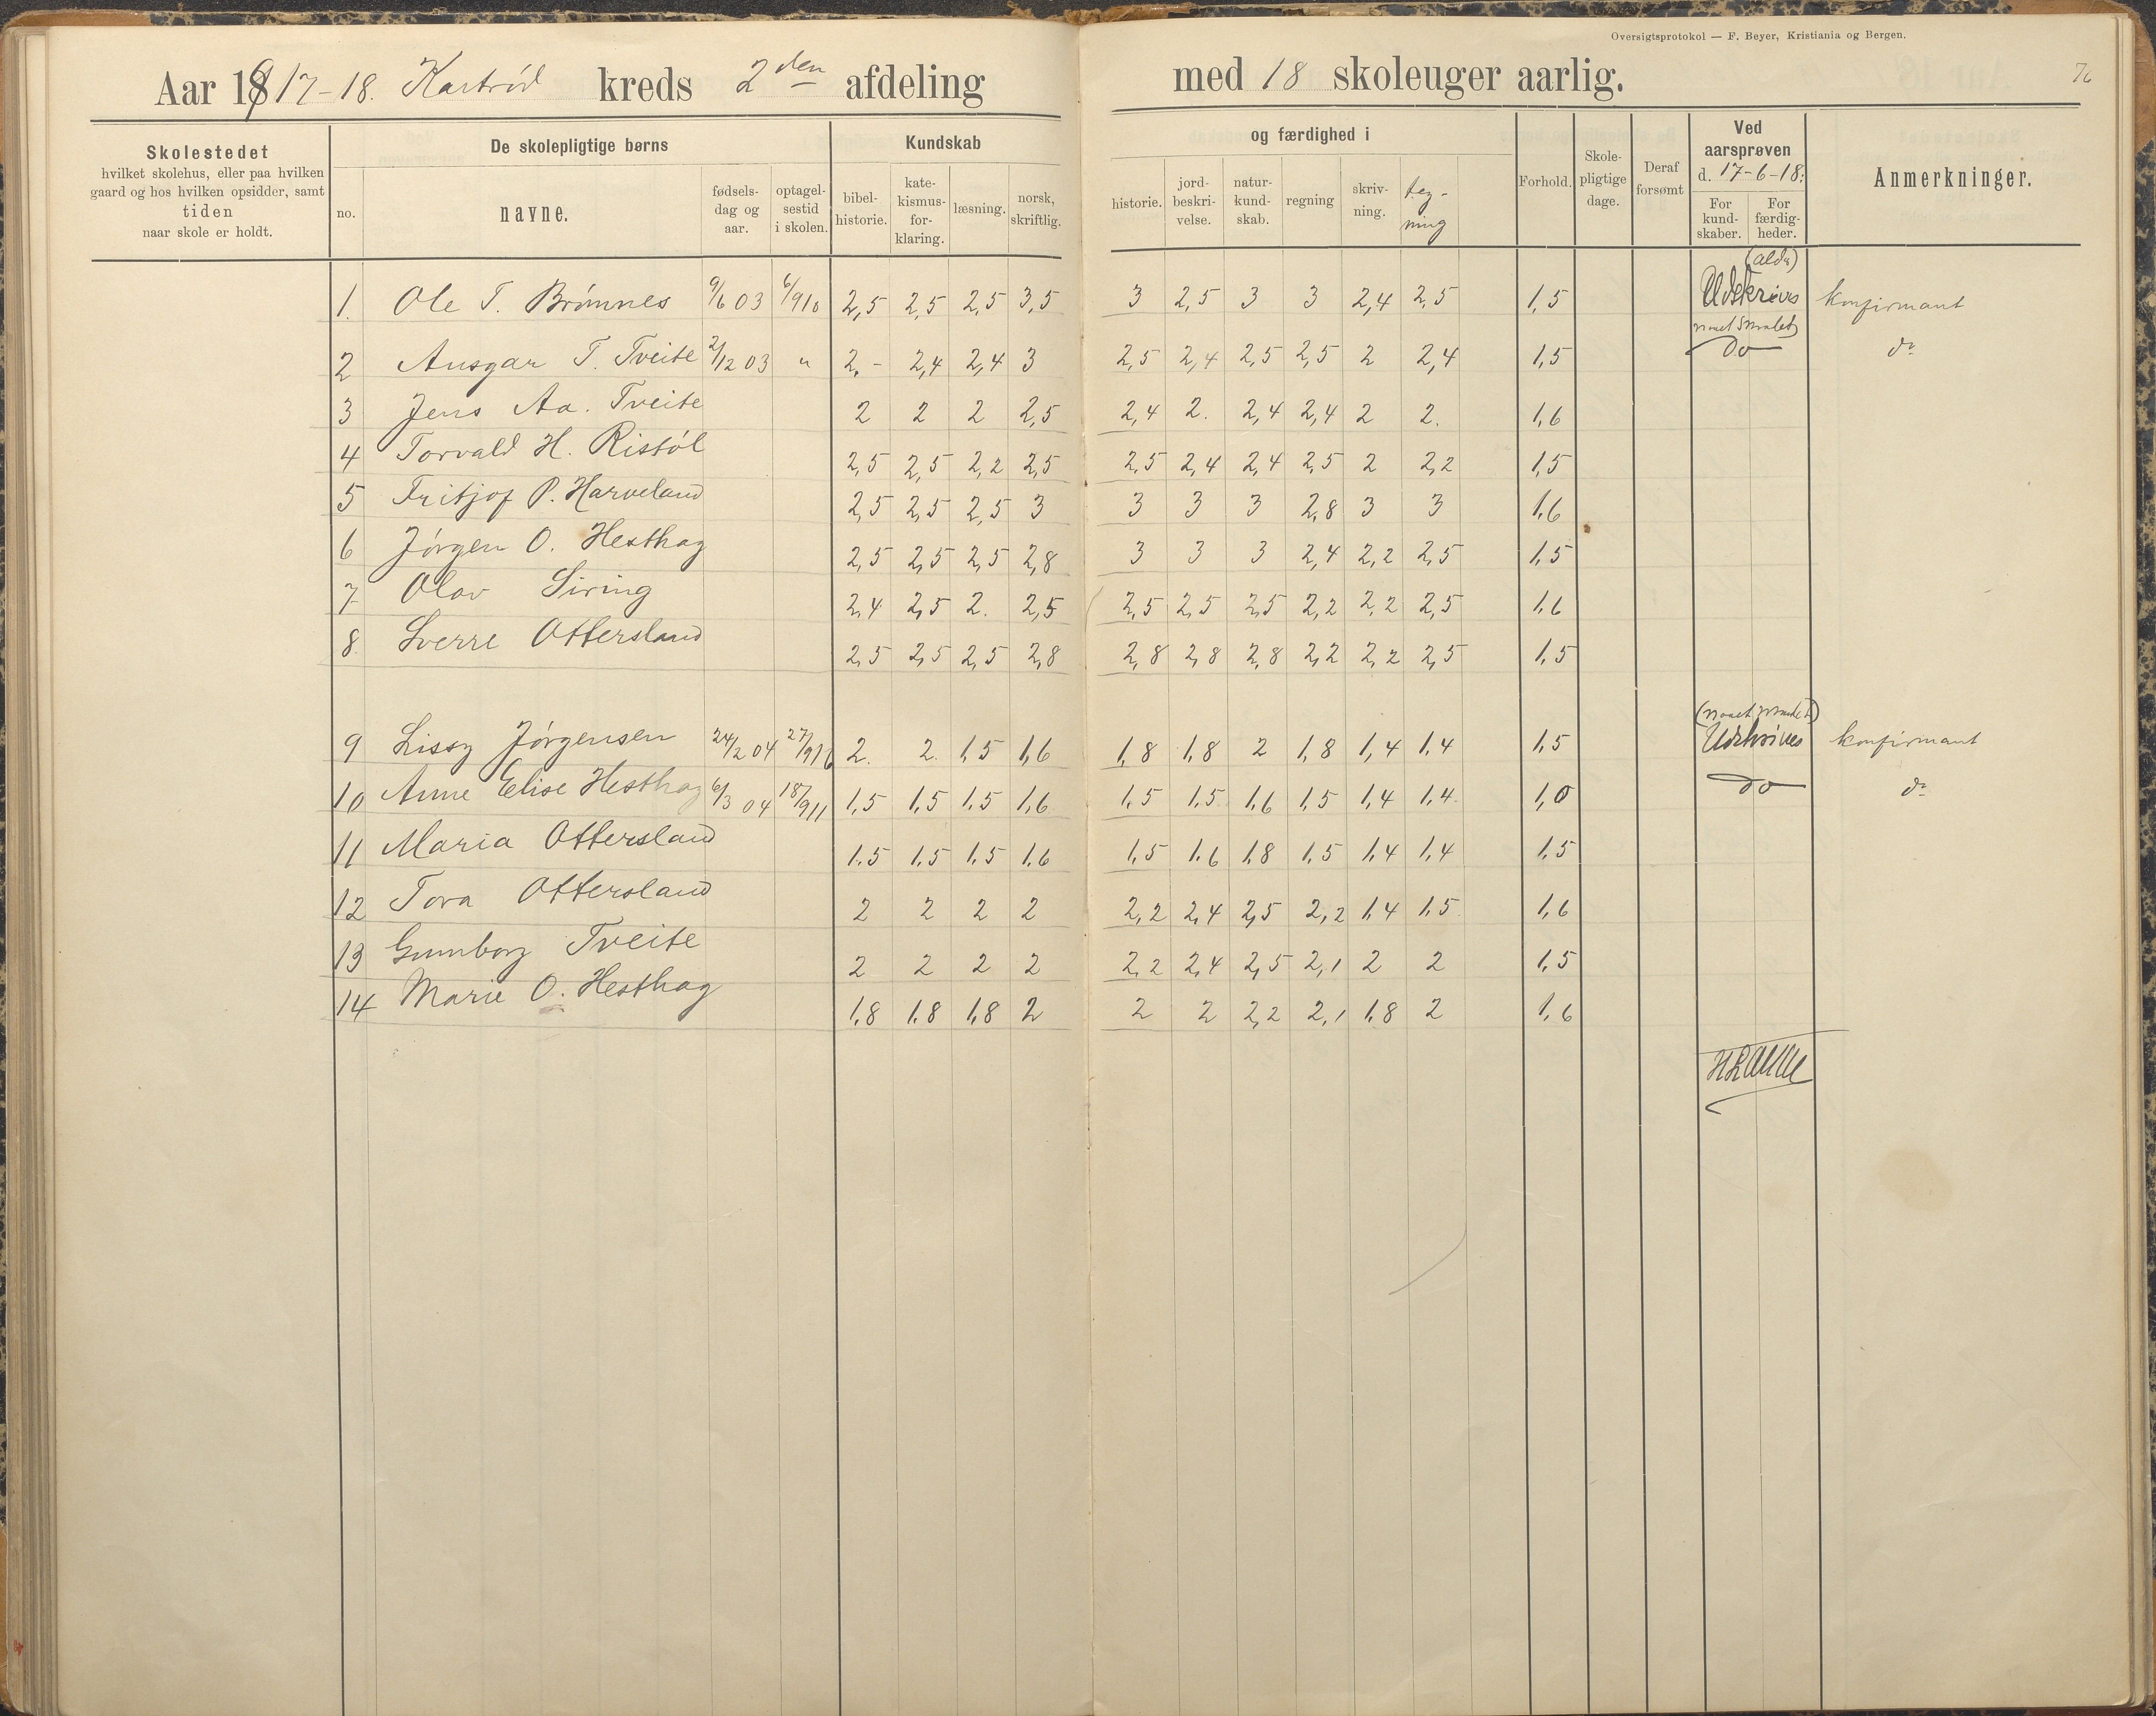 Oversigtsprotokol — F. Beyer, Kristiania og Bergen.
76
Aar 1917-18. Kastrød kreds 2den afdeling med 18 skoleuger aarlig.
Skolestedet hvilket skolehus, eller paa hvilken gaard og hos hvilken opsidder, samt tiden naar skole er holdt.
De skolepligtige børns
no. navne. fødsels-dag og aar. optagel-sestid i skolen.
Kundskab og færdighed i
bibel-historie. kate-kismus-for-klaring. læsning. norsk, skriftlig. historie. jord-beskri-velse. natur-kund-skab. regning skriv-ning. teg-ning
Forhold. Skole-pligtige dage. Deraf forsømt
Ved aarsprøven d. 17-6-18.
For kund-skaber. For færdig-heder.
Anmerkninger.
1. Ole T. Brømnes 9/6 03 6/9 10 2,5 2,5 2,5 3,5 3 2,5 3 3 2,4 2,5 1,5 Udskrives konfirmant
2 Ansgar T. Tveite 2/12 03 " 2,- 2,4 2,4 3 2,5 2,4 2,5 2,5 2 2,4 1,5 do do
3 Jens Aa. Tveite 2 2 2 2,5 2,4 2. 2,4 2,4 2 2. 1,6
4 Torvald H. Ristøl 2,5 2,5 2,2 2,5 2,5 2,4 2,4 2,5 2 2,2 1,5
5 Fritjof P. Harveland 2,5 2,5 2,5 3 3 3 3 2,8 3 3 1,6
6 Jørgen O. Hesthag 2,5 2,5 2,5 2,8 3 3 3 2,4 2,2 2,5 1,5
7 Olav Siring 2,4 2,5 2. 2,5 2,5 2,5 2,5 2,2 2,2 2,5 1,6
8. Sverre Ottersland 2,5 2,5 2,5 2,8 2,8 2,8 2,8 2,2 2,2 2,5 1,5
9 Lissy Jørgensen 24/2 04 27/9 16 2. 2. 1,5 1,6 1,8 1,8 2 1,8 1,4 1,4 1,5 Udskrives konfirmant
10 Anne Elise Hesthag 6/3 04 18/9 11 1,5 1,5 1,5 1,6 1,5 1,5 1,6 1,5 1,4 1,4 1,0 do do
11 Maria Ottersland 1,5 1,5 1,5 1,6 1,5 1,6 1,8 1,5 1,4 1,4 1,5
12 Tora Ottersland 2 2 2 2 2,2 2,4 2,5 2,2 1,4 1,5 1,6
13 Gunnborg Tveite 2 2 2 2 2,2 2,4 2,5 2,1 2 2 1,5
14 Marie O. Hesthag 1,8 1,8 1,8 2 2 2 2,2 2,1 1,8 2 1,6